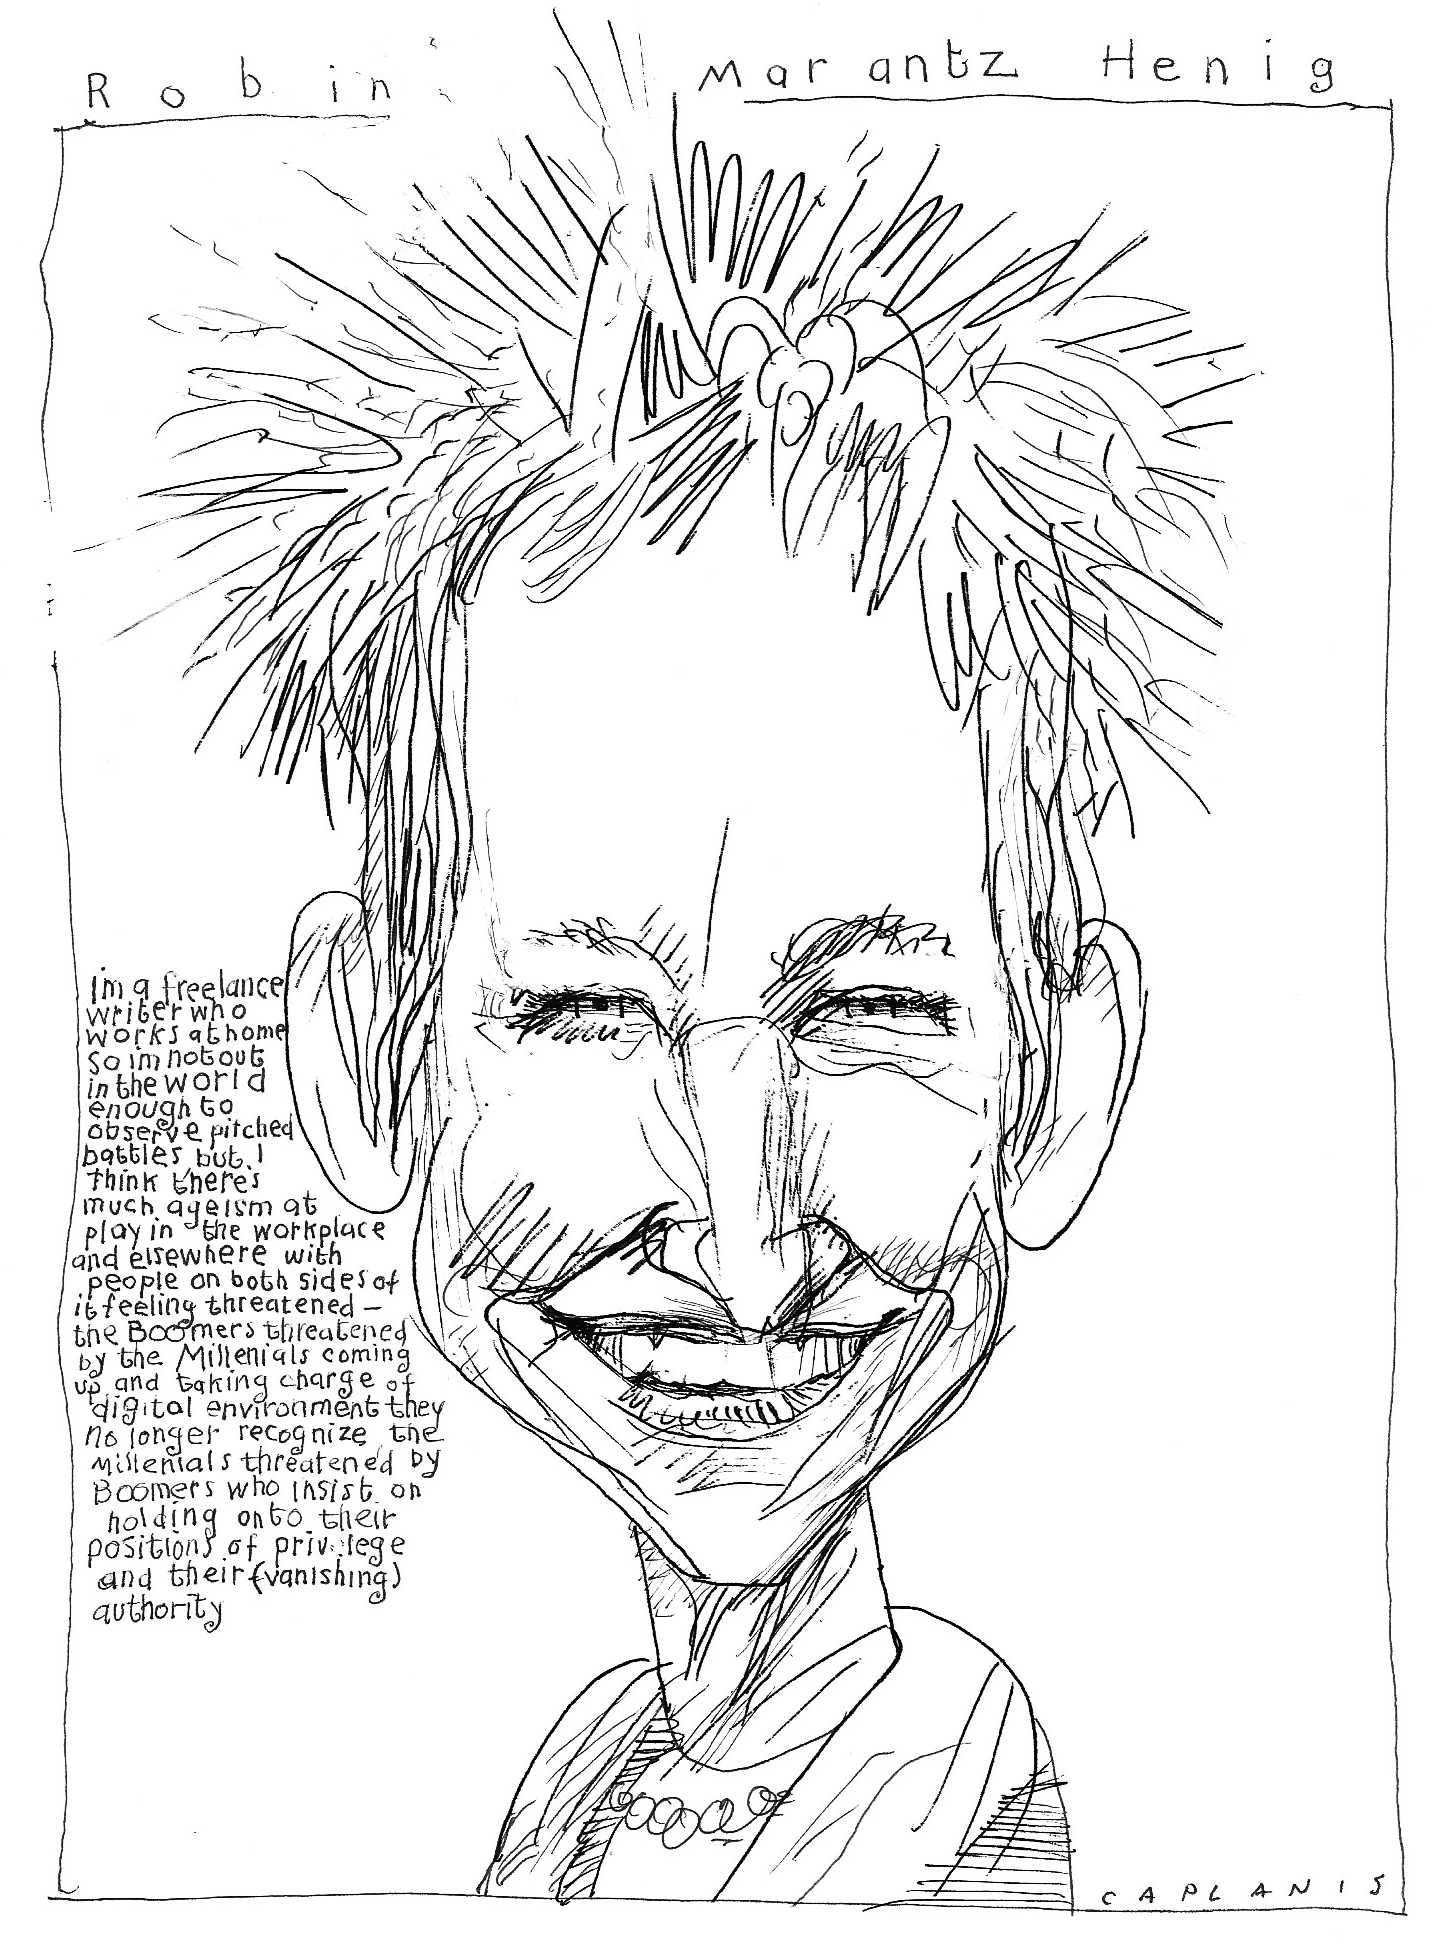 Robin Marantz Henig
Im a freelance
writer who
works at home
so im not out
in the world
enough to
observe pitched
battles but I
think theres
much ageism at
play in the workplace
and elsewhere with
people on both sides of
it feeling threatened –
the Boomers threatened
by the Millenials coming
up and taking charge of
digital environment they
no longer recognize the
Millenials threatened by
Boomers who insist on
holding onto their
positions of privilege
and their (vanishing)
authority
CAPLANIS